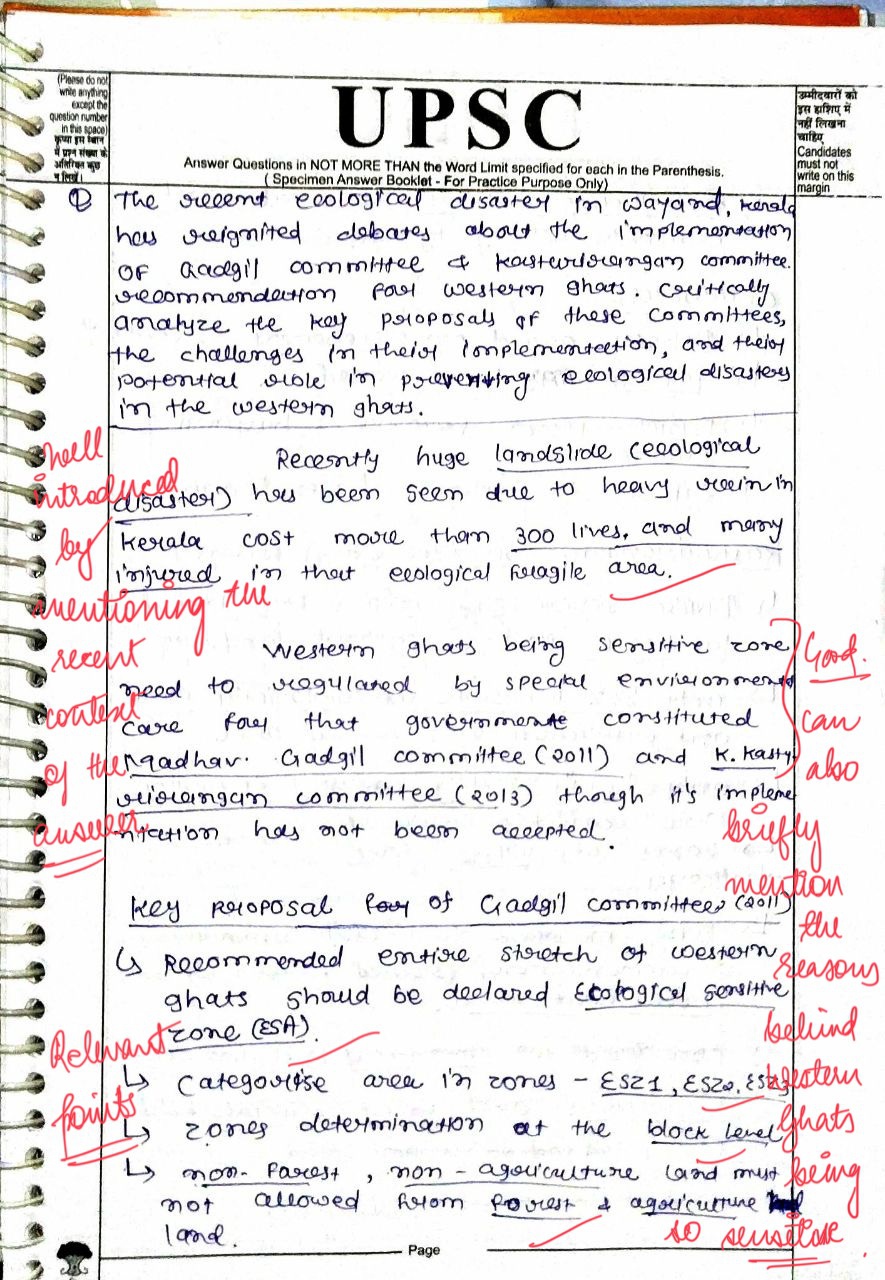 (Please do not
write anything
except the
question number
in this space)
कृपया इस स्थान
में प्रश्न संख्या के
अतिरिक्त कुछ
न लिखें।
UPSC
Answer Questions in NOT MORE THAN the Word Limit specified for each in the Parenthesis.
( Specimen Answer Booklet - For Practice Purpose Only)
उम्मीदवारों को
इस हाशिए में
नहीं लिखना
चाहिए
Candidates
must not
write on this
margin
The recent ecological disaster in wayand, kerala
has reignited debates about the implementation
OF Gadgil committee & kasturirangan committee.
recommendation for western ghats. critically
analyze the key proposals of these committees,
the challenges in their implementation, and their
potential role in preventing ecological disasters
in the western ghats.
Recently huge landslide (ecological
disaster) has been seen due to heavy rain in
kerala cost more than 300 lives. and many
injured in that ecological fragile area.
well
introduced
by
mentioning the
recent
context
of the
answer
Western ghats being sensitive zone
need to regulated by special environment
care for that governmente constituted
Madhav. Gadgil committee (2011) and K. Kastu
rirangan committee (2013) though it's impleme
ntation has not been accepted.
Good.
can
also
briefly
mention
the
reasons
behind
western
Ghats
being
so sensitive
Key proposal for of Gadgil committee, (2011)
↳ Recommended entire stretch of western
ghats should be declared Ecological sensitive
zone (ESA).
↳ categorise area in zones - ESZ1, ESZ2, ESZ3
↳ zones determination at the block level
↳ non-forest, non-agriculture land must
not allowed from forest & agriculture
land.
Relevant
points
Page